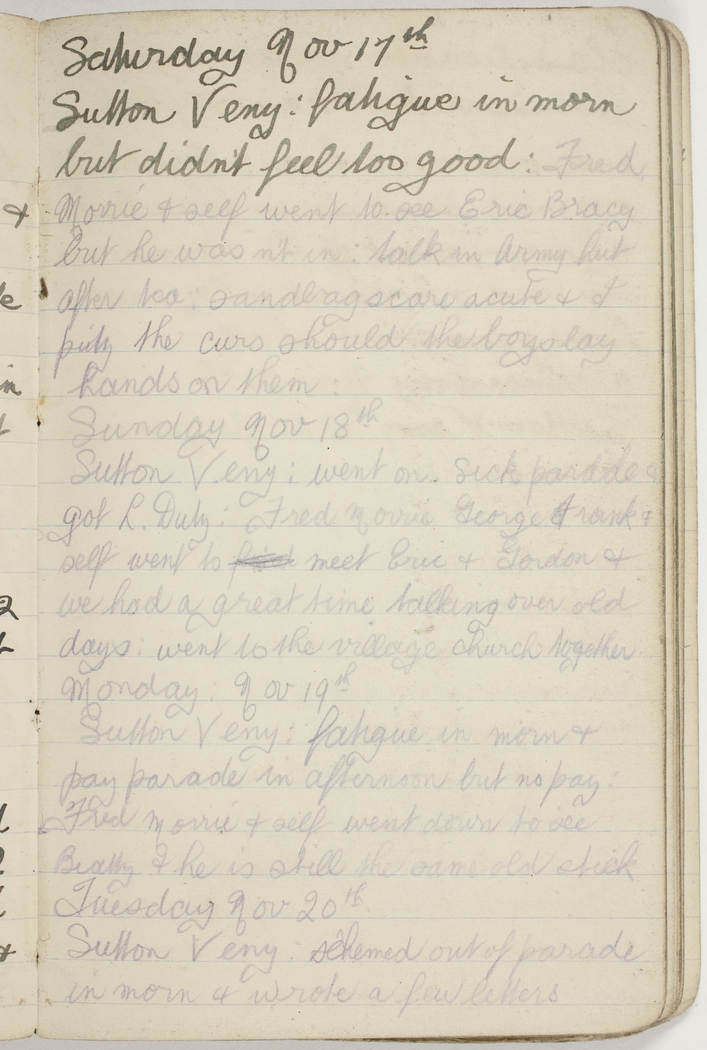 Saturday Nov 17th
Sutton Veny: fatigue in morn
but didn't feel too good: Fred,
Morrie & self went to see Eric Bracy
but he was n't in: talk in Army hut
after tea: sandbag scare acute & I
pity the curs should the boys lay
hands on them:
Sunday Nov 18th
Sutton Veny: went on sick parade &
got L. Duty: Fred Morrie George Frank &
self went to meet Eric & Gordon &
we had a great time talking over old
days: went to the village church together
Monday: Nov 19th
Sutton Veny: fatigue in morn &
pay parade in afternoon but no pay:
Fred Morrie & self went down to see
Beatty & he is still the same old stick
Tuesday Nov 20th
Sutton Veny: schemed out of parade
in morn & wrote a few letters